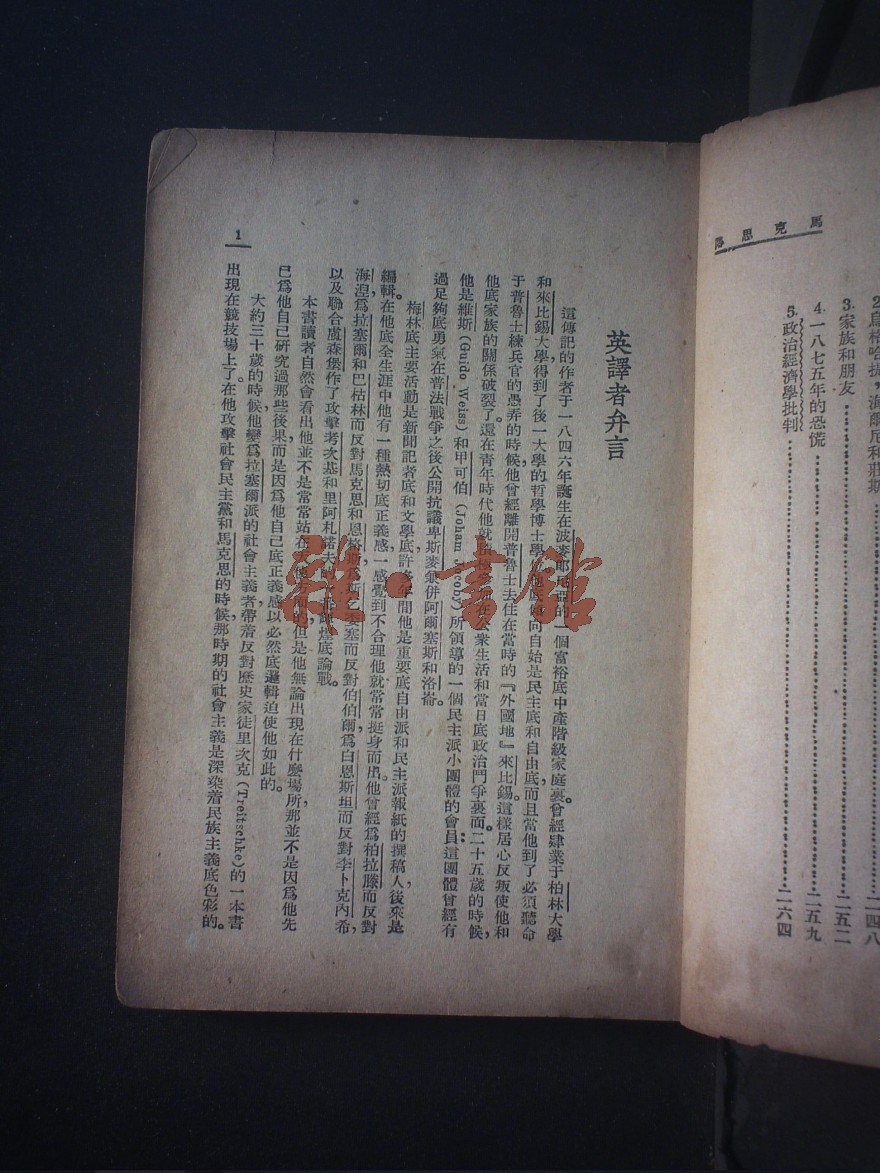 馬克思傳
海爾尼和莊斯……二四八
3.家族和朋友……二五二
4.一八七五年的恐慌……二五九
5.政治經濟學批判……二六四
英譯者弁言
這傳記的作者于一八四六年誕生在波麥郎尼亞的一個富裕底中產階級家庭裏。曾經肄業于柏林大學
和來比錫大學,得到了後一大學的哲學博士學位。他底傾向自始是民主底和自由底,而且當他到了必須聽命
于普魯士練兵官的愚弄的時候,他曾經離開普魯士去住在當時的『外國地』來比錫。這樣居心反叛使他和
他底家族的關係破裂了。還在青年時代他就積極參加在公衆生活和當日底政治鬥爭裏面。二十五歲的時候,
他是維斯(Guido Weiss)和甲可伯(Johann Jacoby)所領導的一個民主派小團體的會員;這團體曾經有
過足夠底勇氣在普法戰爭之後公開抗議卑斯麥彙併阿爾塞斯和洛崙。
梅林底主要活動是新聞記者底和文學底。許多年間他是重要底自由派和民主派報紙的撰稿人,後來是
編輯。在他底全生涯中他有一種熱切底正義感,一感覺到不合理他就常常挺身而出。他曾經爲柏拉滕而反對
海涅,爲拉塞爾和巴枯林而反對馬克思和恩格斯,爲斯乞委塞而反對伯伯爾,爲白恩斯坦而反對李卜克內希,
以及聯合盧森堡作了攻擊考次基和里阿札諾夫的一番輝煌底論戰。
本書讀者自然會看出他並不是常常站在天使方面的,但是他無論出現在什麼場所,那並不是因爲他先
已爲他自己研究過那些後果,而是因爲他自己底正義感以必然底邏輯迫使他如此的。
大約三十歲的時候,他變爲拉塞爾派的社會主義者,帶着反對歷史家徒里次克(Treitschke)的一本書
出現在競技場上了。在他攻擊社會民主黨和馬克思的時候,那時期的社會主義是深染着民族主義底色彩的。
1
雜·書館